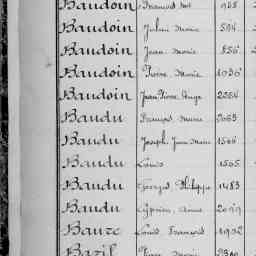 Baudoin
Baudoin Julien Marie 594
Baudoin Jean Marie 856
Baudoin Pierre Marie 1036
Baudoin Jean Pierre 2254
Baudu François Marie
Baudu Joseph Jean Marie
Baudu Louis 1565
Baudu Philippe 1483
Baudu Cyprien
Bauze Louis François 1902
Bazil Marie